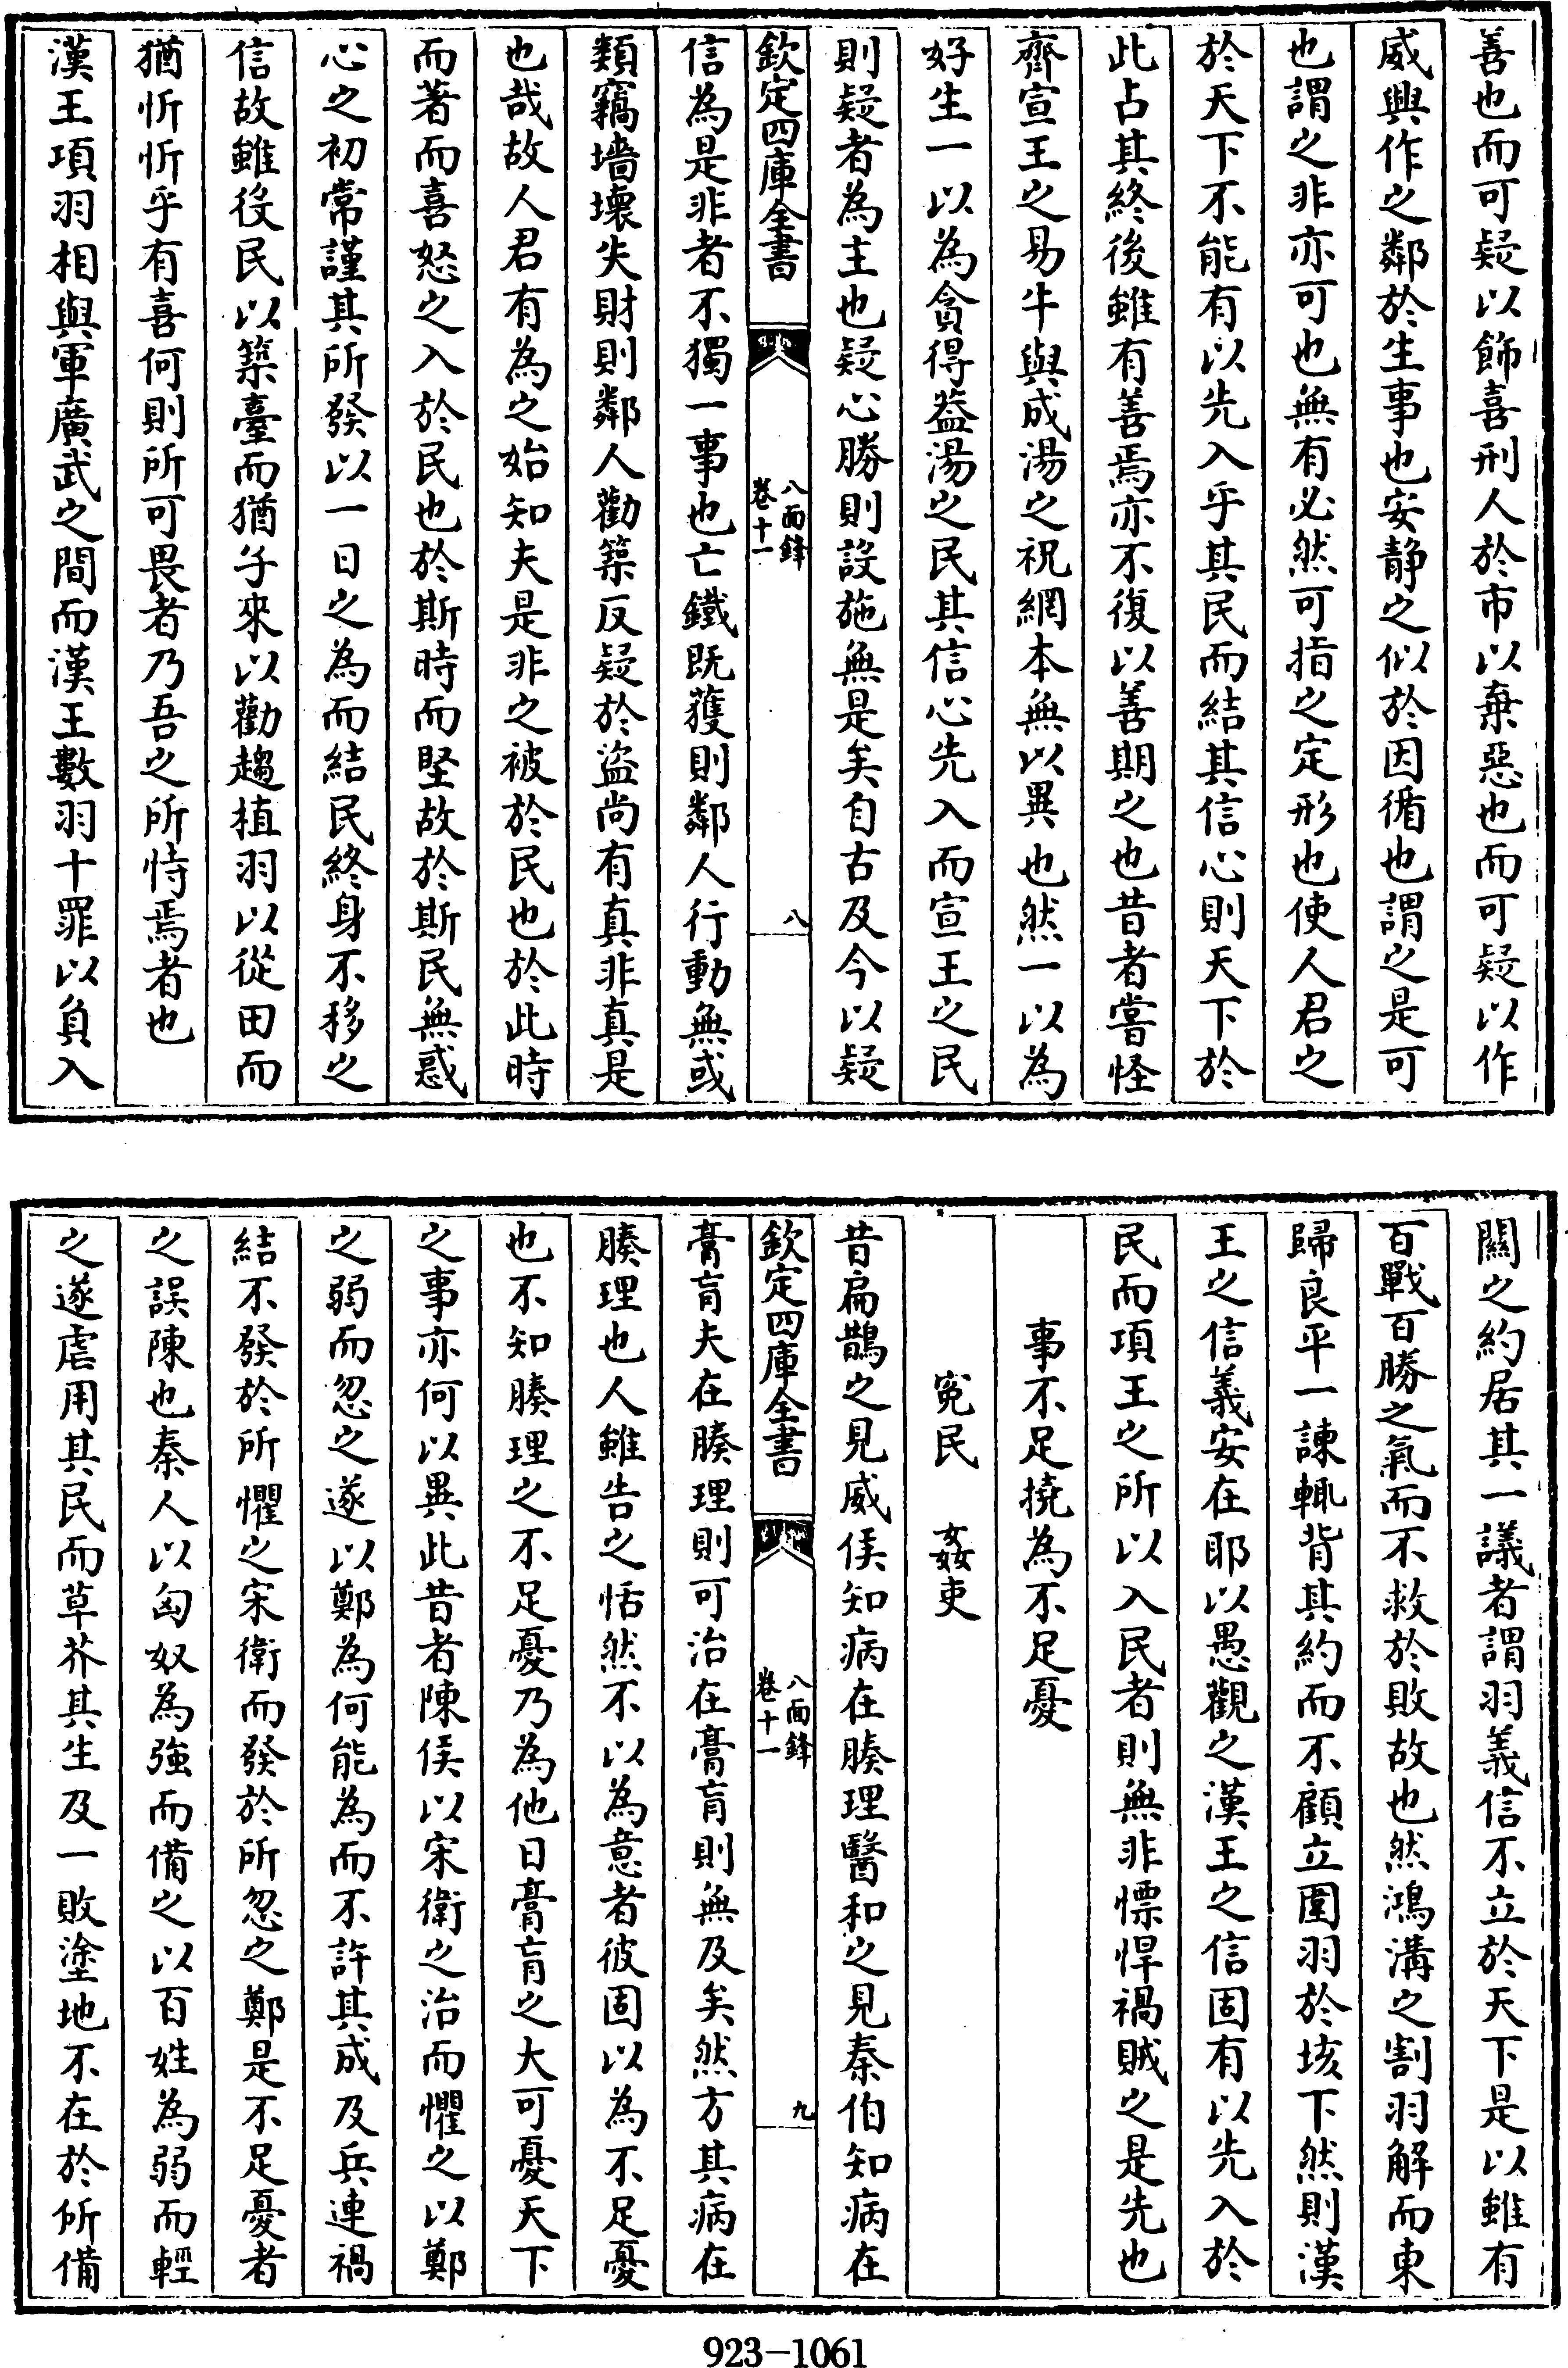 善也而可疑以飾喜刑人於市以棄惡也而可疑以作
威興作之鄰於生事也安靜之似於因循也謂之是可
也謂之非亦可也無有必然可指之定形也使人君之
於天下不能有以先入乎其民而結其信心則天下於
此占其終後雖有善焉亦不復以善期之也昔者嘗怪
齊宣王之易牛與成湯之祝網本無以異也然一以為
好生一以為貪得蓋湯之民其信心先入而宣王之民
則疑者為主也疑心勝則設施無是矣自古及今以疑
欽定四庫全書
八面鋒
卷十一
八
信為是非者不獨一事也亡鐵既獲則鄰人行動無或
類竊墻壞失財則鄰人勸築反疑於盜尚有真非真是
也哉故人君有為之始知夫是非之被於民也於此時
而著而喜怒之入於民也於斯時而堅故於斯民無惑
心之初常謹其所發以一日之為而結民終身不移之
信故雖役民以築臺而猶子來以勸趨植羽以從田而
猶忻忻乎有喜何則所可畏者乃吾之所恃焉者也
漢王項羽相與軍廣武之間而漢王數羽十罪以負入
關之約居其一議者謂羽義信不立於天下是以雖有
百戰百勝之氣而不救於敗故也然鴻溝之割羽解而東
歸良平一諫輒背其約而不顧立圍羽於垓下然則漢
王之信義安在耶以愚觀之漢王之信固有以先入於
民而項王之所以入民者則無非慓悍禍賊之是先也
事不足撓為不足憂
寃民 姦吏
昔扁鵲之見威侯知病在腠理醫和之見秦伯知病在
欽定四庫全書
八面鋒
卷十一
九
膏肓夫在腠理則可治在膏肓則無及矣然方其病在
腠理也人雖告之恬然不以為意者彼固以為不足憂
也不知腠理之不足憂乃為他日膏肓之大可憂天下
之事亦何以異此昔者陳侯以宋衛之治而懼之以鄭
之弱而忽之遂以鄭為何能為而不許其成及兵連禍
結不發於所懼之宋衛而發於所忽之鄭是不足憂者
之誤陳也秦人以匈奴為強而備之以百姓為弱而輕
之遂虐用其民而草芥其生及一敗塗地不在於所備
923-1061